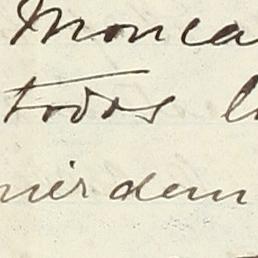 Monca
todos l
nier dem